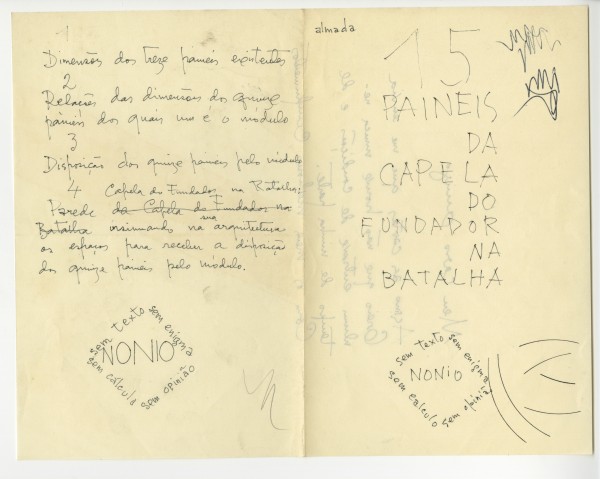 1
Dimensões dos treze paineis existentes
2
Relações das dimensões dos quinze
paineis dos quais um é o modulo
3
Disposição dos quinze paineis pelo modulo
4 Capela do Fundador na Batalha:
Parede da Capela do Fundador na
Batalha insinuando na sua arquitectura
os espaços para receber a disposição
dos quinze paineis pelo modulo.
sem texto sem enigma
NONIO
sem cálculo sem opinião
almada
15
PAINEIS
DA
CAPELA
DO
FUNDADOR
NA
BATALHA
sem texto sem enigma
NONIO
sem cálculo sem opinião